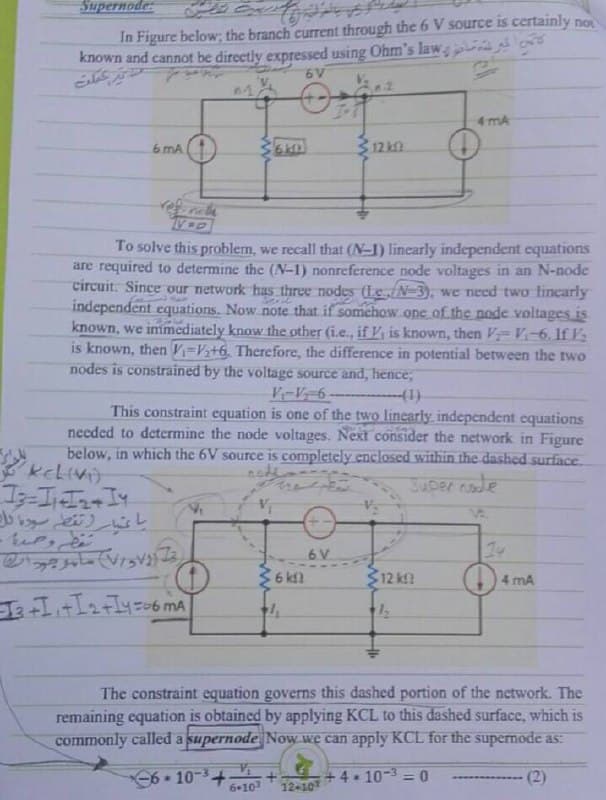 Supernode:
In Figure below; the branch current through the 6 V source is certainly not
known and cannot be directly expressed using Ohm's law.
6 V
n-1
V₁
V₂
n-2
4 mA
6 mA
6 kΩ
12 kΩ
ref-node
V=0
To solve this problem, we recall that (N–1) linearly independent equations
are required to determine the (N–1) nonreference node voltages in an N-node
circuit. Since our network has three nodes (i.e., N=3), we need two linearly
independent equations. Now note that if somehow one of the node voltages is
known, we immediately know the other (i.e., if V₁ is known, then V₂= V₁–6. If V₂
is known, then V₁=V₂+6. Therefore, the difference in potential between the two
nodes is constrained by the voltage source and, hence;
V₁–V₂=6 --------------(1)
This constraint equation is one of the two linearly independent equations
needed to determine the node voltages. Next consider the network in Figure
below, in which the 6V source is completely enclosed within the dashed surface.
KCL(V₁)
I₃=I₁+I₂+I₄
node
Super node
V₁
V₁
V₂
V₂
6 V
I₃
I₄
6 kΩ
12 kΩ
4 mA
-I₃+I₁+I₂+I₄=0
6 mA
I₁
I₂
The constraint equation governs this dashed portion of the network. The
remaining equation is obtained by applying KCL to this dashed surface, which is
commonly called a supernode. Now we can apply KCL for the supernode as:
−6 * 10⁻³ + V₁/6*10³ + /12*10³ + 4 * 10⁻³ = 0 ------------- (2)